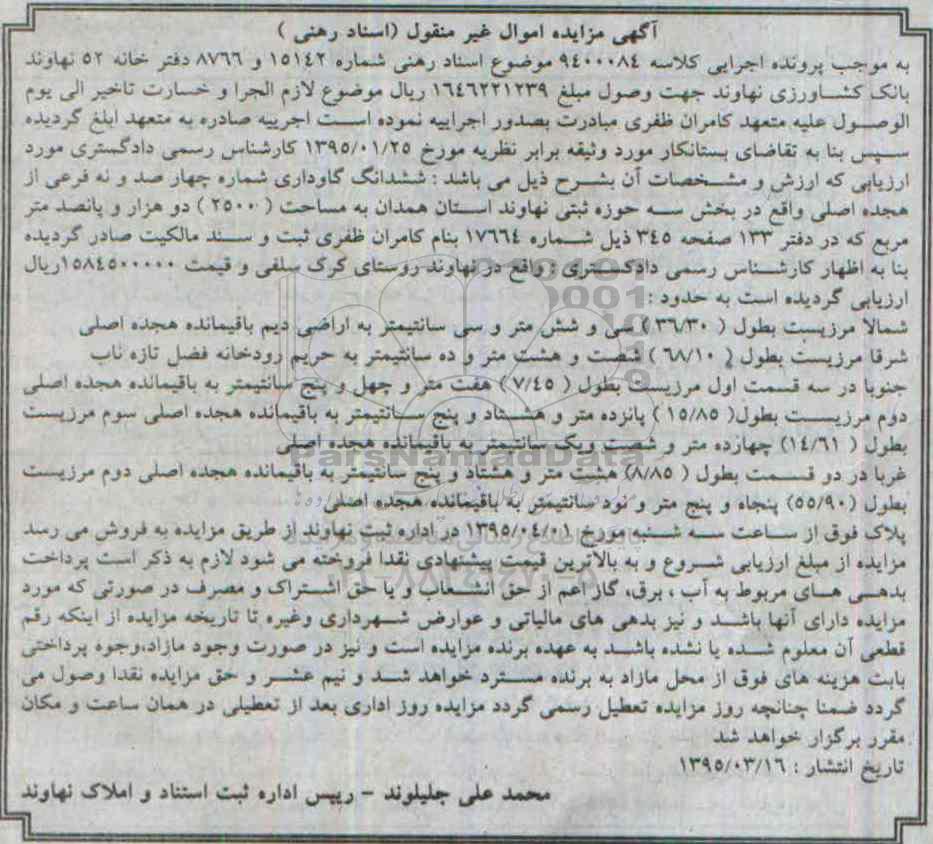 آگهی مزایده اموال غیر منقول (اسناد رهنی )
به موجب پرونده اجرایی کلاسه ۹۴۰۰۰۸۴ موضوع اسناد رهنی شماره ۱۵۱۴۲ و ۸۷۶۶ دفتر خانه ۵۲ نهاوند
بانک کشاورزی نهاوند جهت وصول مبلغ ۱۶۴۶۲۲۱۲۳۹ ریال موضوع لازم الجرا و خسارت تاخیر الی یوم
الوصول علیه متعهد کامران ظفری مبادرت بصدور اجراییه نموده است اجرییه صادره به متعهد ابلغ گردیده
سپس بنا به تقاضای بستانکار مورد وثیقه برابر نظریه مورخ ۱۳۹۵/۰۱/۲۵ کارشناس رسمی دادگستری مورد
ارزیابی که ارزش و مشخصات آن بشرح ذیل می باشد : ششدانگ گاوداری شماره چهار صد و نه فرعی از
هجده اصلی واقع در بخش سه حوزه ثبتی نهاوند استان همدان به مساحت ( ۲۵۰۰ ) دو هزار و پانصد متر
مربع که در دفتر ۱۳۳ صفحه ۳۴۵ ذیل شماره ۱۷۶۶۴ بنام کامران ظفری ثبت و سند مالکیت صادر گردیده
بنا به اظهار کارشناس رسمی دادگستری : واقع در نهاوند روستای کرک سلفی و قیمت ۱۵۸۴۵۰۰۰۰۰ریال
ارزیابی گردیده است به حدود :
شمالا مرزیست بطول ( ۳۶/۳۰ ) سی و شش متر و سی سانتیمتر به اراضی دیم باقیمانده هجده اصلی
شرقا مرزیست بطول ( ۶۸/۱۰ ) شصت و هشت متر و ده سانتیمتر به حریم رودخانه فضل تازه ناب
جنوبا در سه قسمت اول مرزیست بطول ( ۷/۴۵ ) هفت متر و چهل و پنج سانتیمتر به باقیمانده هجده اصلی
دوم مرزیست بطول( ۱۵/۸۵ ) پانزده متر و هشتاد و پنج سانتیمتر به باقیمانده هجده اصلی سوم مرزیست
بطول ( ۱۴/۶۱) چهارده متر و شصت ویک سانتیمتر به باقیمانده هجده اصلی
غربا در دو قسمت بطول ( ۸/۸۵) هشت متر و هشتاد و پنج سانتیمتر به باقیمانده هجده اصلی دوم مرزیست
بطول (۵۵/۹۰) پنجاه و پنج متر و نود سانتیمتر به باقیمانده هجده اصلی
پلاک فوق از ساعت سه شنبه مورخ ۱۳۹۵/۰۴/۰۱ در اداره ثبت نهاوند از طریق مزایده به فروش می رسد
مزایده از مبلغ ارزیابی شروع و به بالاترین قیمت پیشنهادی نقدا فروخته می شود لازم به ذکر است پرداخت
بدهی های مربوط به آب ، برق، گاز اعم از حق انشعاب و یا حق اشتراک و مصرف در صورتی که مورد
مزایده دارای آنها باشد و نیز بدهی های مالیاتی و عوارض شهرداری وغیره تا تاریخه مزایده از اینکه رقم
قطعی آن معلوم شده یا نشده باشد به عهده برنده مزایده است و نیز در صورت وجود مازاد،وجوه پرداختی
بابت هزینه های فوق از محل مازاد به برنده مسترد خواهد شد و نیم عشر و حق مزایده نقدا وصول می
گردد ضمنا چنانچه روز مزایده تعطیل رسمی گردد مزایده روز اداری بعد از تعطیلی در همان ساعت و مکان
مقرر برگزار خواهد شد
تاریخ انتشار : ۱۳۹۵/۰۳/۱۶
محمد علی جلیلوند - رییس اداره ثبت استناد و املاک نهاوند
ParsNamadData